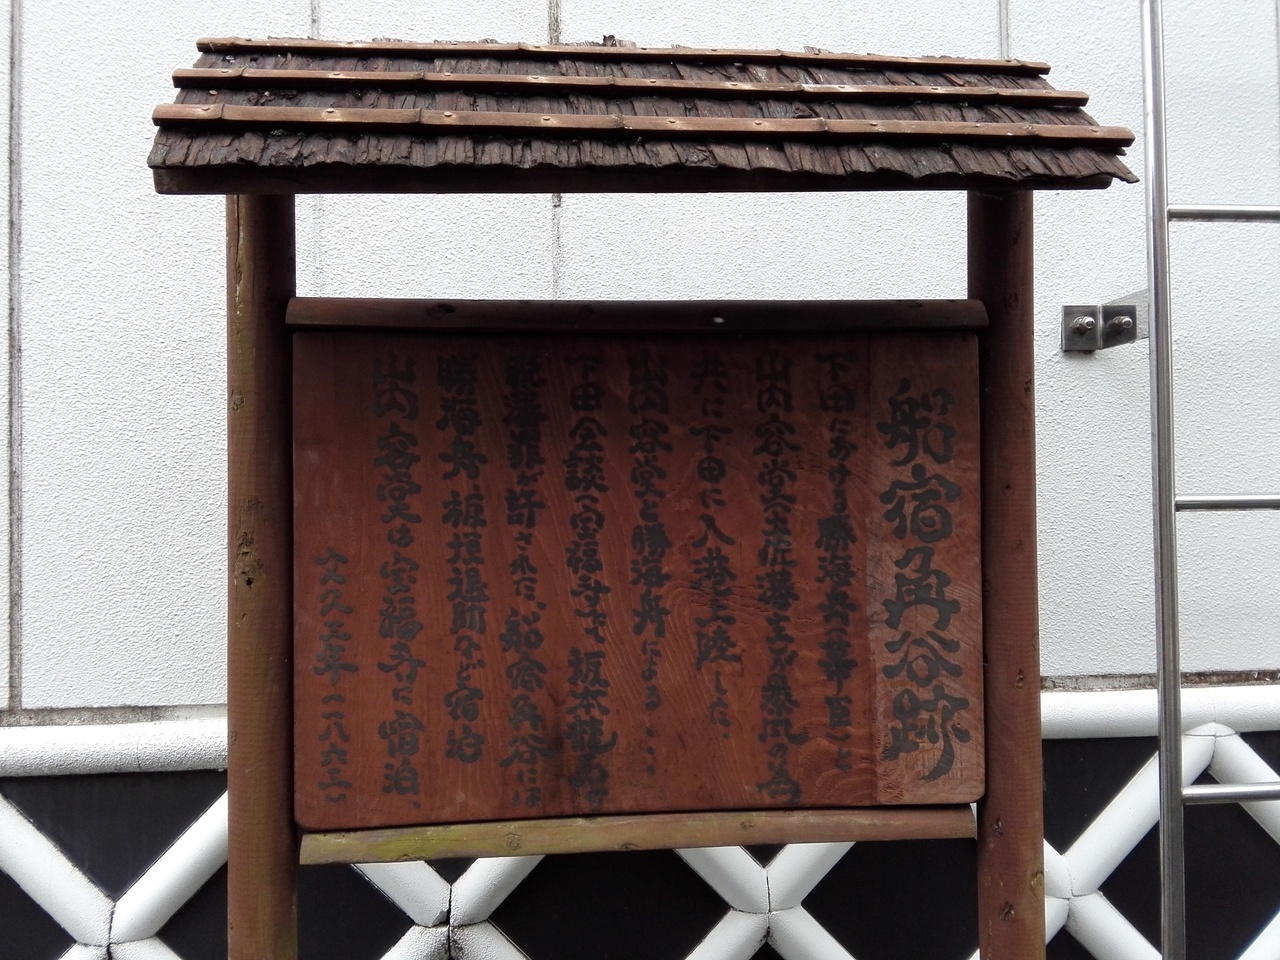 船宿角谷跡
下田における勝海舟(幕臣)と
山内容堂(土佐藩主)が暴風の為
共に下田に入港上陸した、
山内容堂と勝海舟による
下田会談(宝福寺)で、坂本龍馬の
脱藩罪が許された、船宿角谷には
勝海舟、板垣退助など宿泊
山内容堂は宝福寺に宿泊、
文久三年(一八六三)